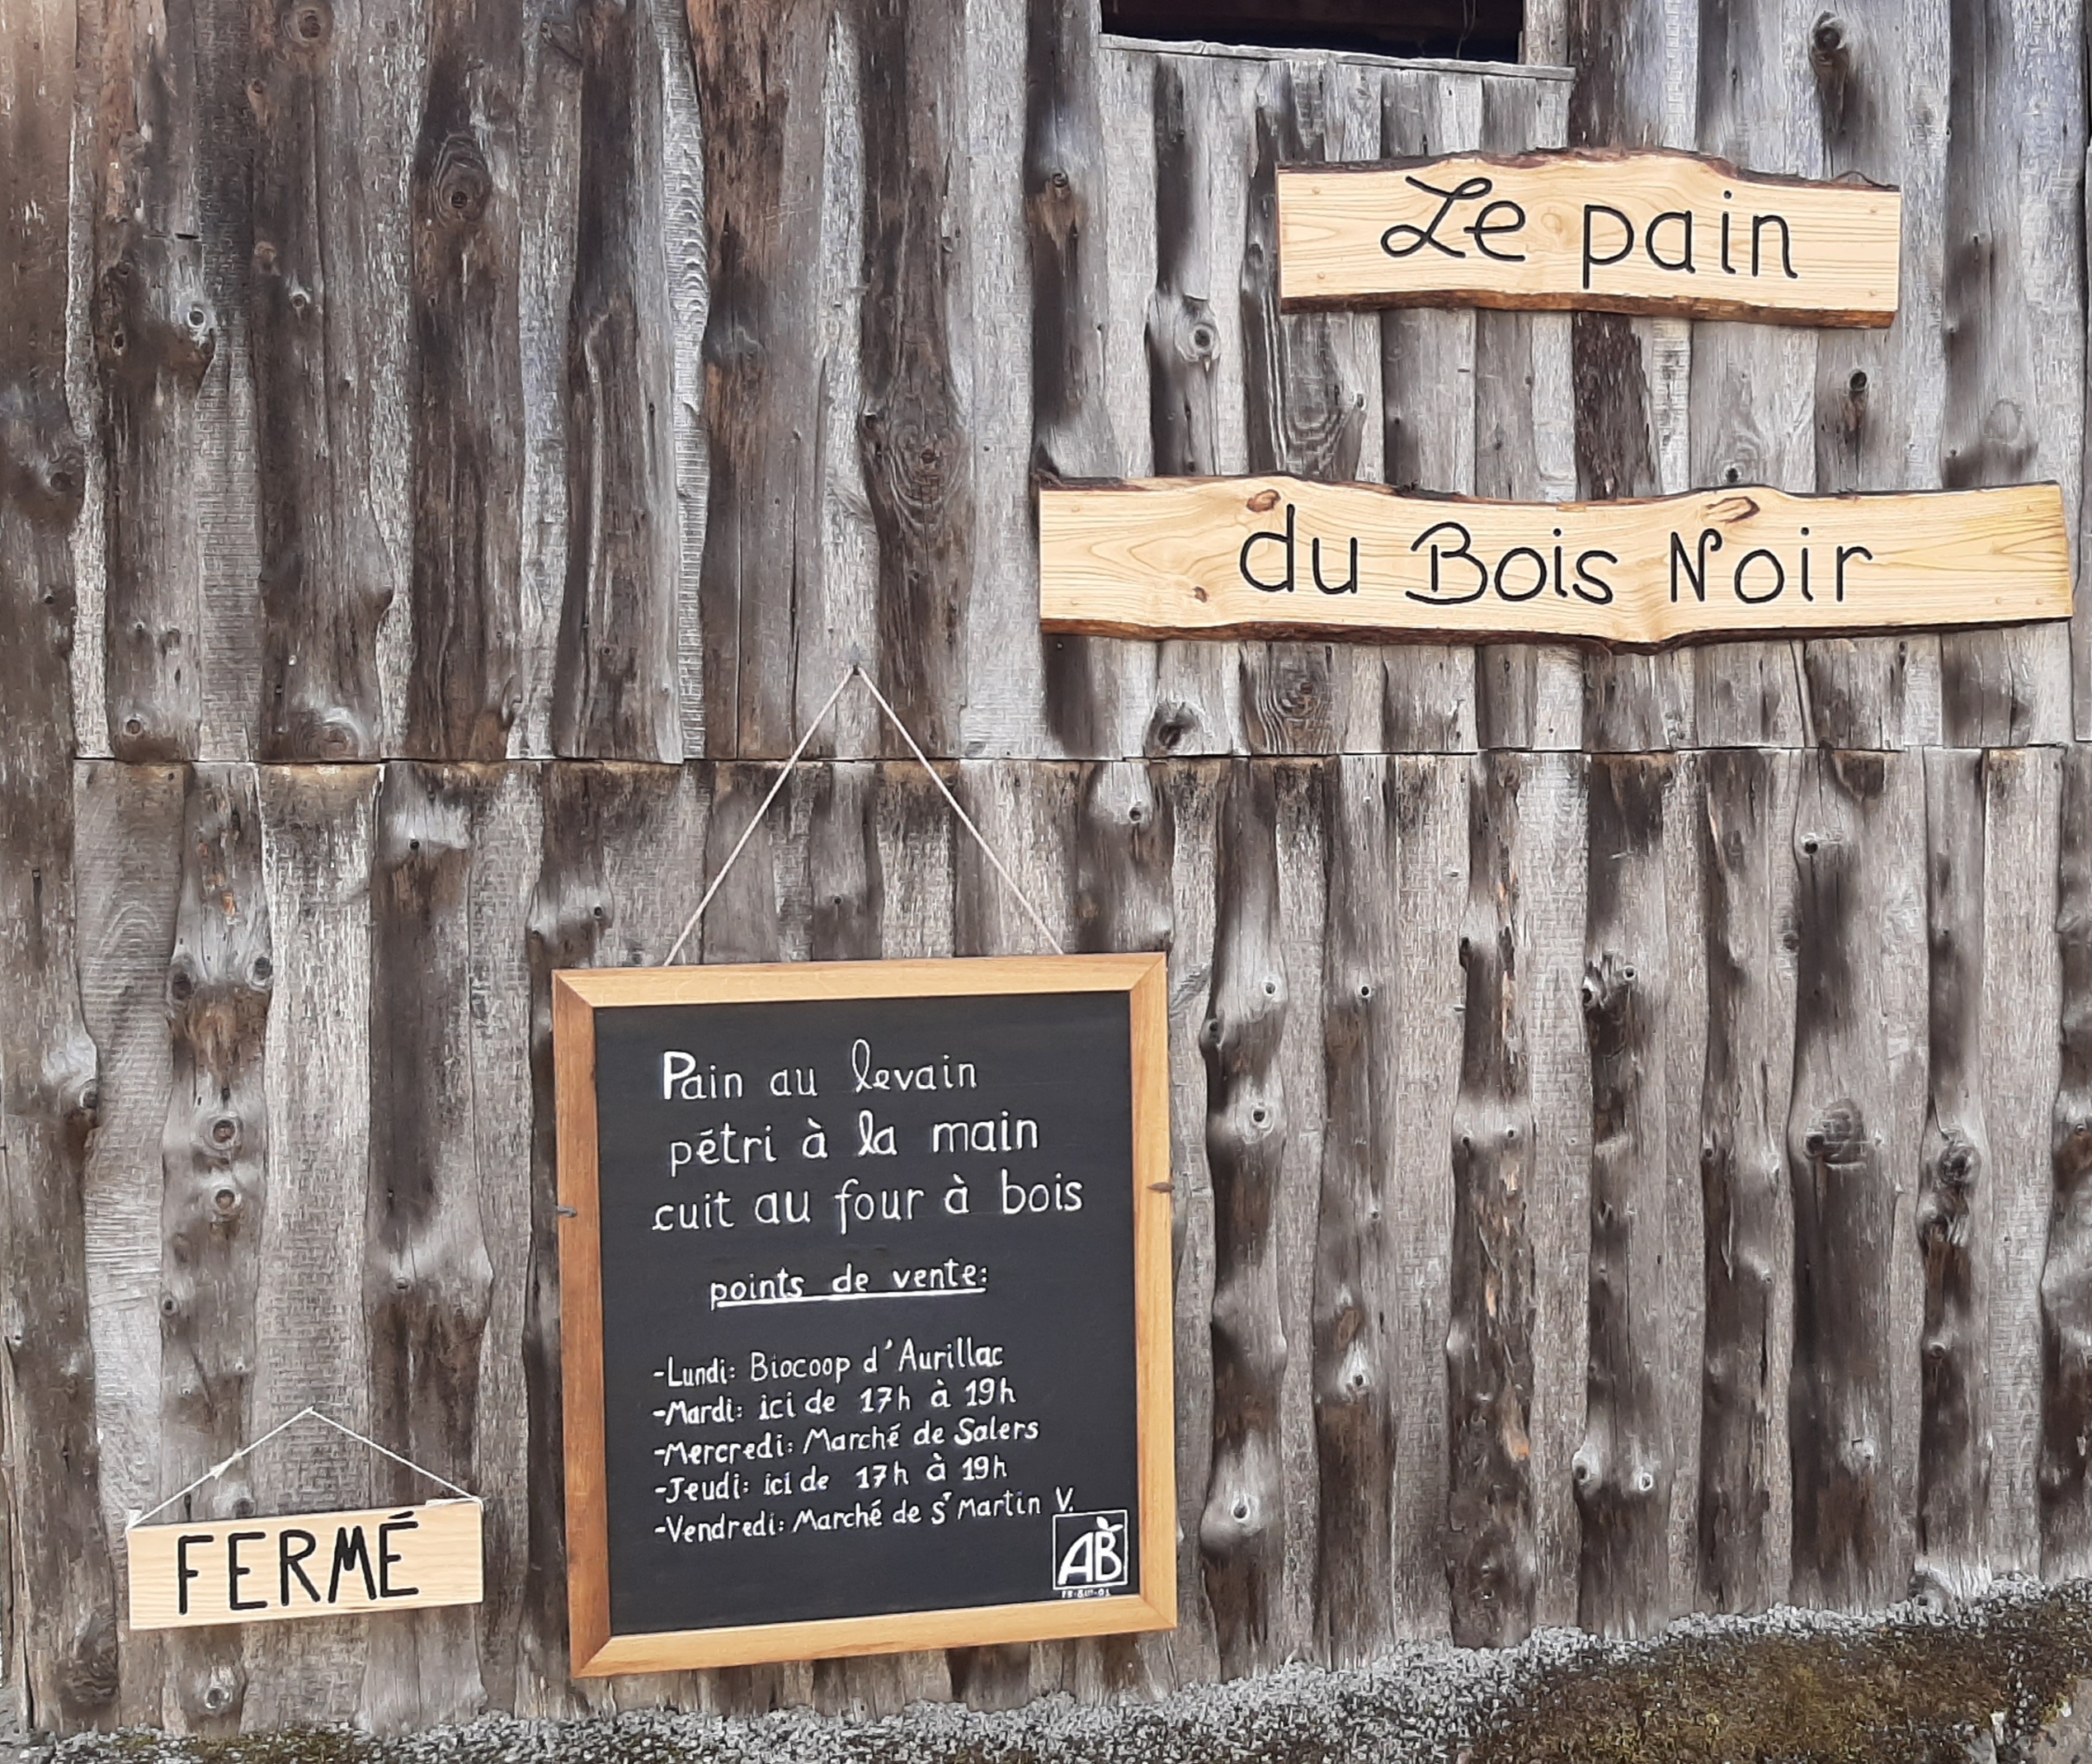 Le pain
du Bois Noir
Pain au levain
pétri à la main
cuit au four à bois
points de vente:
-Lundi: Biocoop d'Aurillac
-Mardi: ici de 17h à 19h
-Mercredi: Marché de Salers
-Jeudi: ici de 17h à 19h
-Vendredi: Marché de St Martin V.
AB
FERMÉ